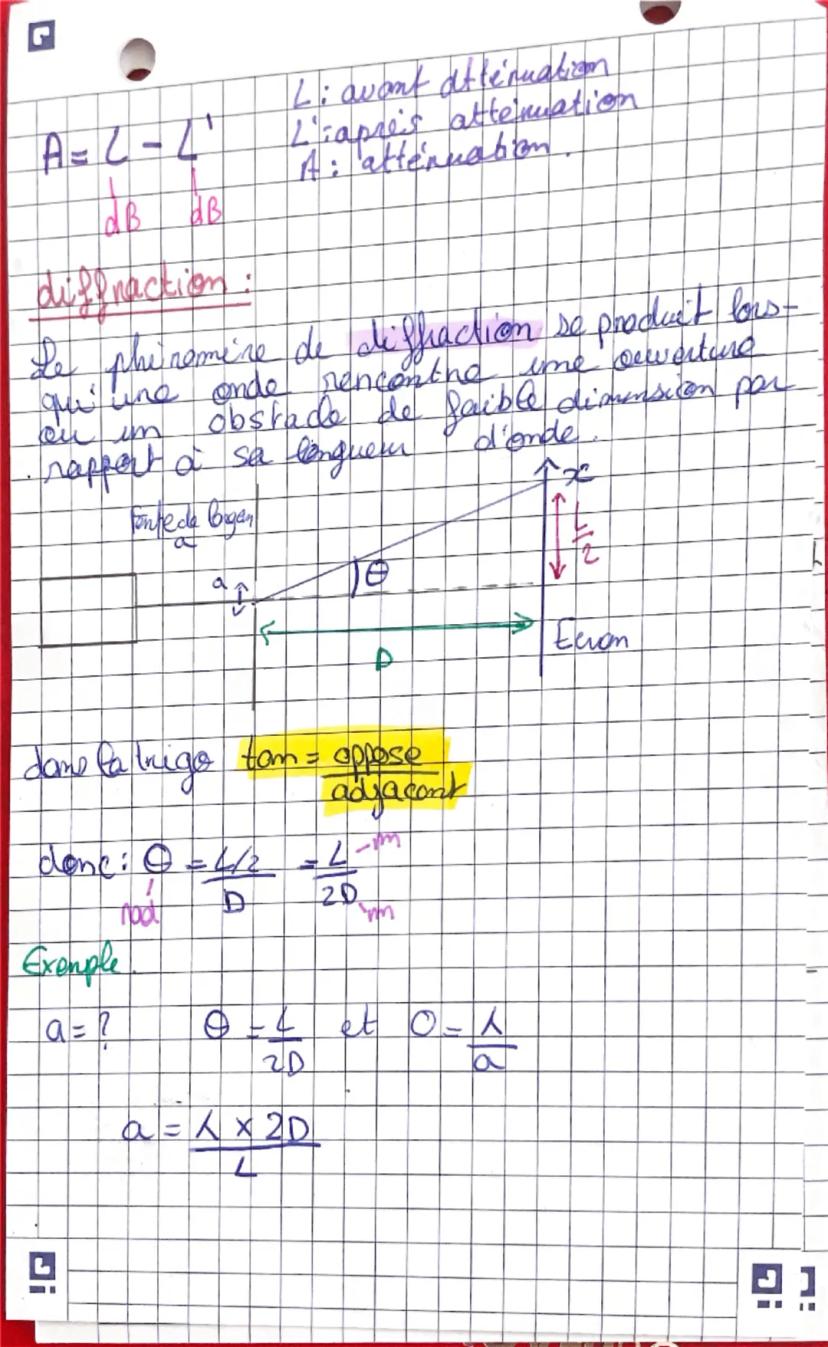 A = L - L'
dB dB
L : avant atténuation
L' : après atténuation
A : atténuation.
diffraction :
Le phénomène de diffraction se produit lors-
qu'une onde rencontre une ouverture
ou un obstacle de faible dimension par
rapport à sa longueur d'onde.
Fente de largeur
a
x
L/2
a
θ
D
Ecran
dans la trigo tan = oppose/adjacent
donc : θ = L/2 / D = L/2D
rad m m
Exemple.
a = ? θ = L/2D et θ = λ/a
a = λ × 2D / L